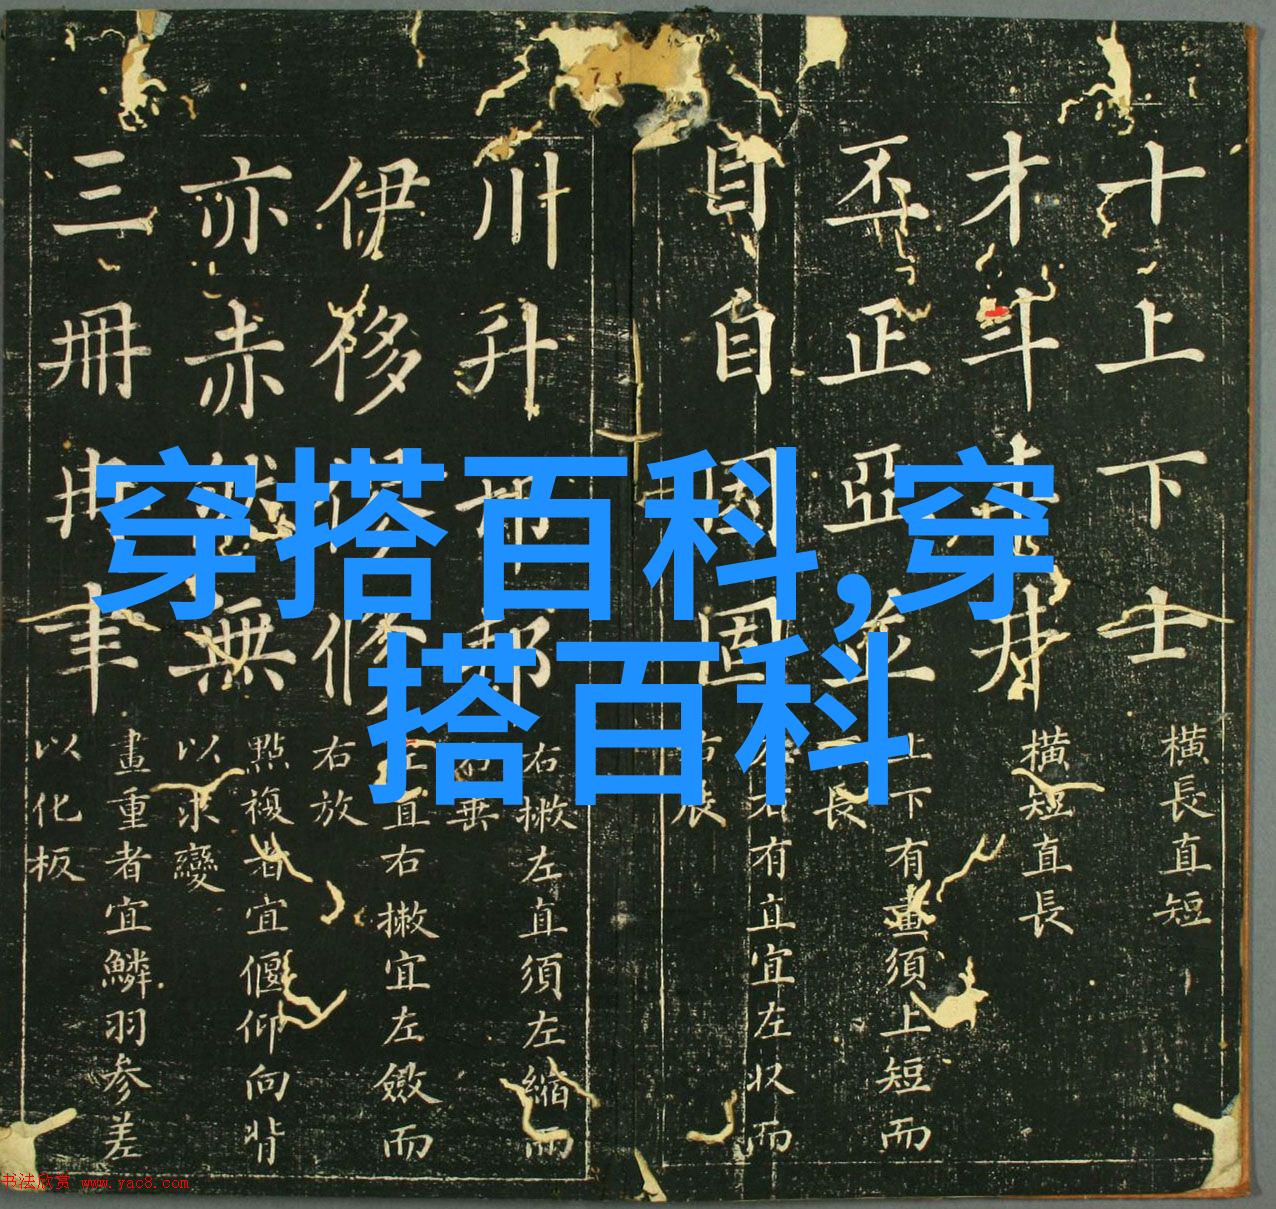 穿搭百科,穿
搭百科
十上下士
橫長直短
才斗
橫短直長
丕正亞並
上下有畫須上短而
長
目自固
左右有直宜左収而
右展
川升
右撇左直須左縮而
右垂
伊移修
左直右撇宜左斂而
右放
亦赤無
點複者宜偃仰向背
以求變
三冊冉聿
畫重者宜鱗羽参差
以化板
书法欣赏 www.yac8.com